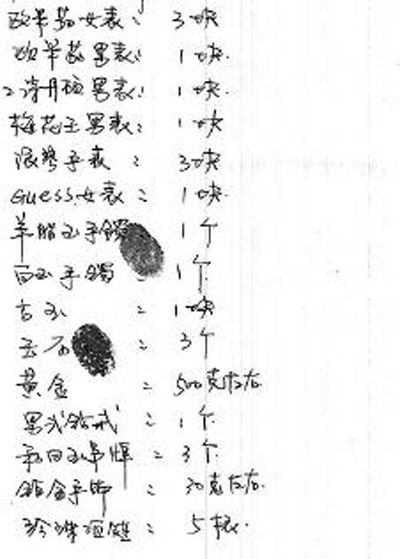 欧米茄女表: 3块
欧米茄男表: 1块.
诗丹顿男表: 1块.
梅花王男表: 1块
浪琴手表: 3块
Guess女表: 1块.
羊脂玉手镯 1个
白玉手镯 1个.
古玉 : 1块
玉石 : 3个
黄金 : 500克左右
男式钻戒 : 1个.
和田玉吊牌 : 3个.
铂金手饰 : 30克左右.
珍珠项链 : 5根.